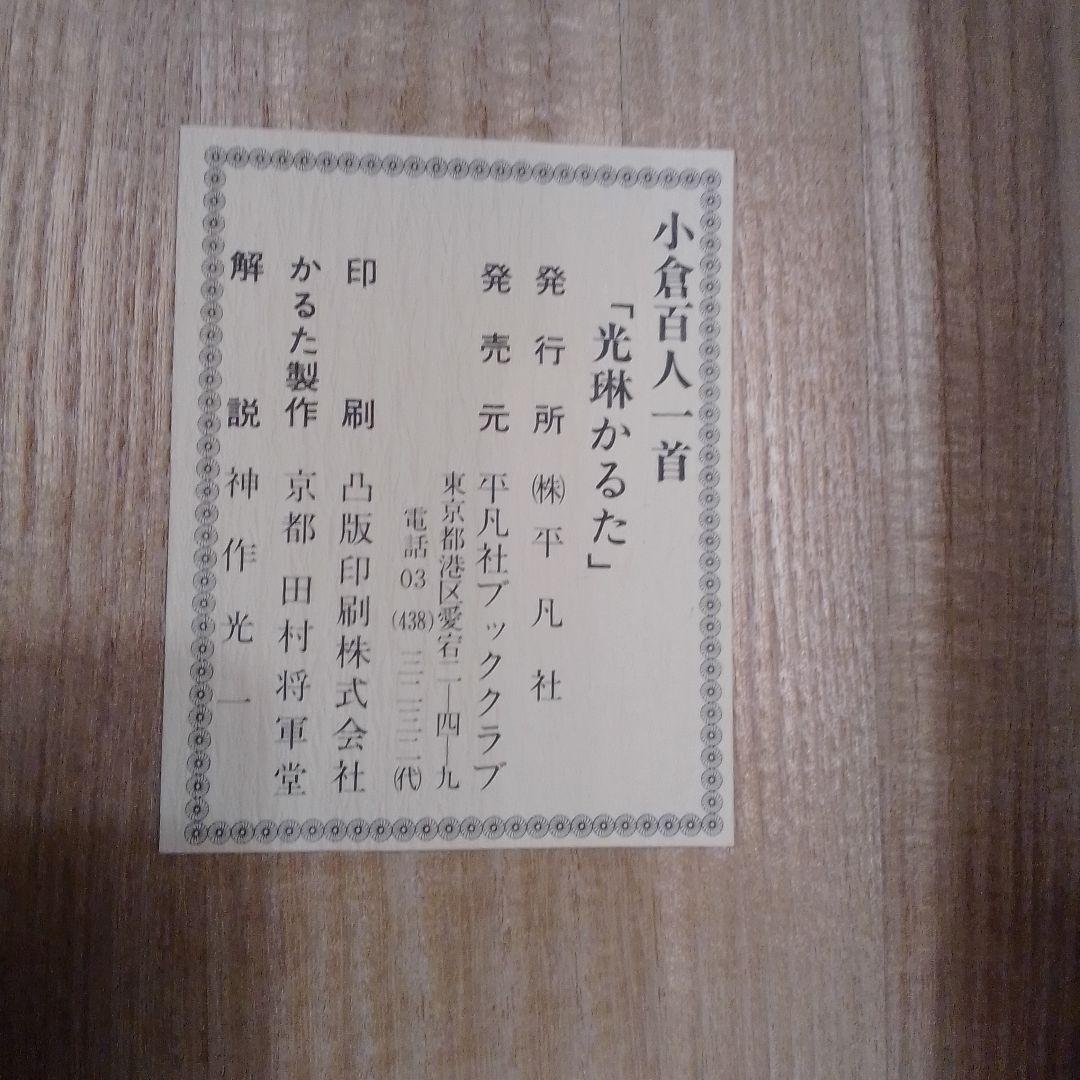 小倉百人一首
「光琳かるた」
発行所 ㈱平凡社
発売元 平凡社ブッククラブ
東京都港区愛宕二―四―九
電話03(438)三二三二(代)
印刷 凸版印刷株式会社
かるた製作 京都 田村将軍堂
解説 神作光一